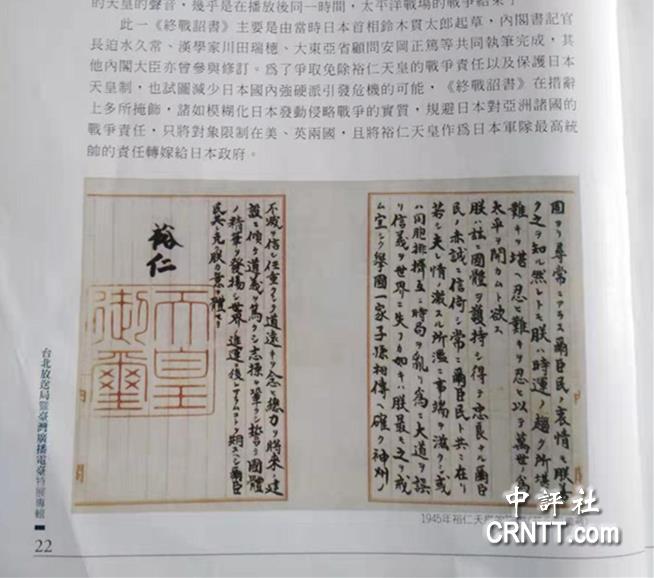 的天皇的聲音，幾乎是在播放後同一時間，太平洋戰場的戰爭結束了
此一《終戰詔書》主要是由當時日本首相鈴木貫太郎起草，內閣書記官
長迫水久常、漢學家川田瑞穗、大東亞省顧問安岡正篤等共同執筆完成，其
他內閣大臣亦曾參與修訂。為了爭取免除裕仁天皇的戰爭責任以及保護日本
天皇制，也試圖減少日本國內強硬派引發危機的可能，《終戰詔書》在措辭
上多所掩飾，諸如模糊化日本發動侵略戰爭的實質，規避日本對亞洲諸國的
戰爭責任，只將對象限制在美、英兩國，且將裕仁天皇作為日本軍隊最高統
帥的責任轉嫁給日本政府。
固ヨリ尋常ニアラス爾臣民ノ衷情モ朕善
ク之ヲ知ル然レトモ朕ハ時運ノ趨ク所堪
難キヲ堪ヘ忍ヒ難キヲ忍ヒ以テ萬世ノ為
太平ヲ開カムト欲ス
朕ハ茲ニ國體ヲ護持シ得テ忠良ナル爾臣
民ノ赤誠ニ信倚シ常ニ爾臣民ト共ニ在リ
若シ夫レ情ノ激スル所濫ニ事端ヲ滋クシ或
ハ同胞排擠互ニ時局ヲ亂リ為ニ大道ヲ誤
リ信義ヲ世界ニ失フカ如キハ朕最モ之ヲ戒
ム宜シク擧國一家子孫相傳ヘ確ク神州ノ
不滅ヲ信シ任重クシテ道遠キヲ念ヒ總力ヲ將來ノ建
設ニ傾ケ道義ヲ篤クシ志操ヲ鞏クシ誓テ國體
ノ精華ヲ發揚シ世界ノ進運ニ後レサラムコトヲ期スヘシ爾臣
民其レ克ク朕カ意ヲ體セヨ
裕仁
天皇
御璽
1945年裕仁天皇
台北放送局暨臺灣廣播電臺特展專輯
22
中評社
CRNTT.com